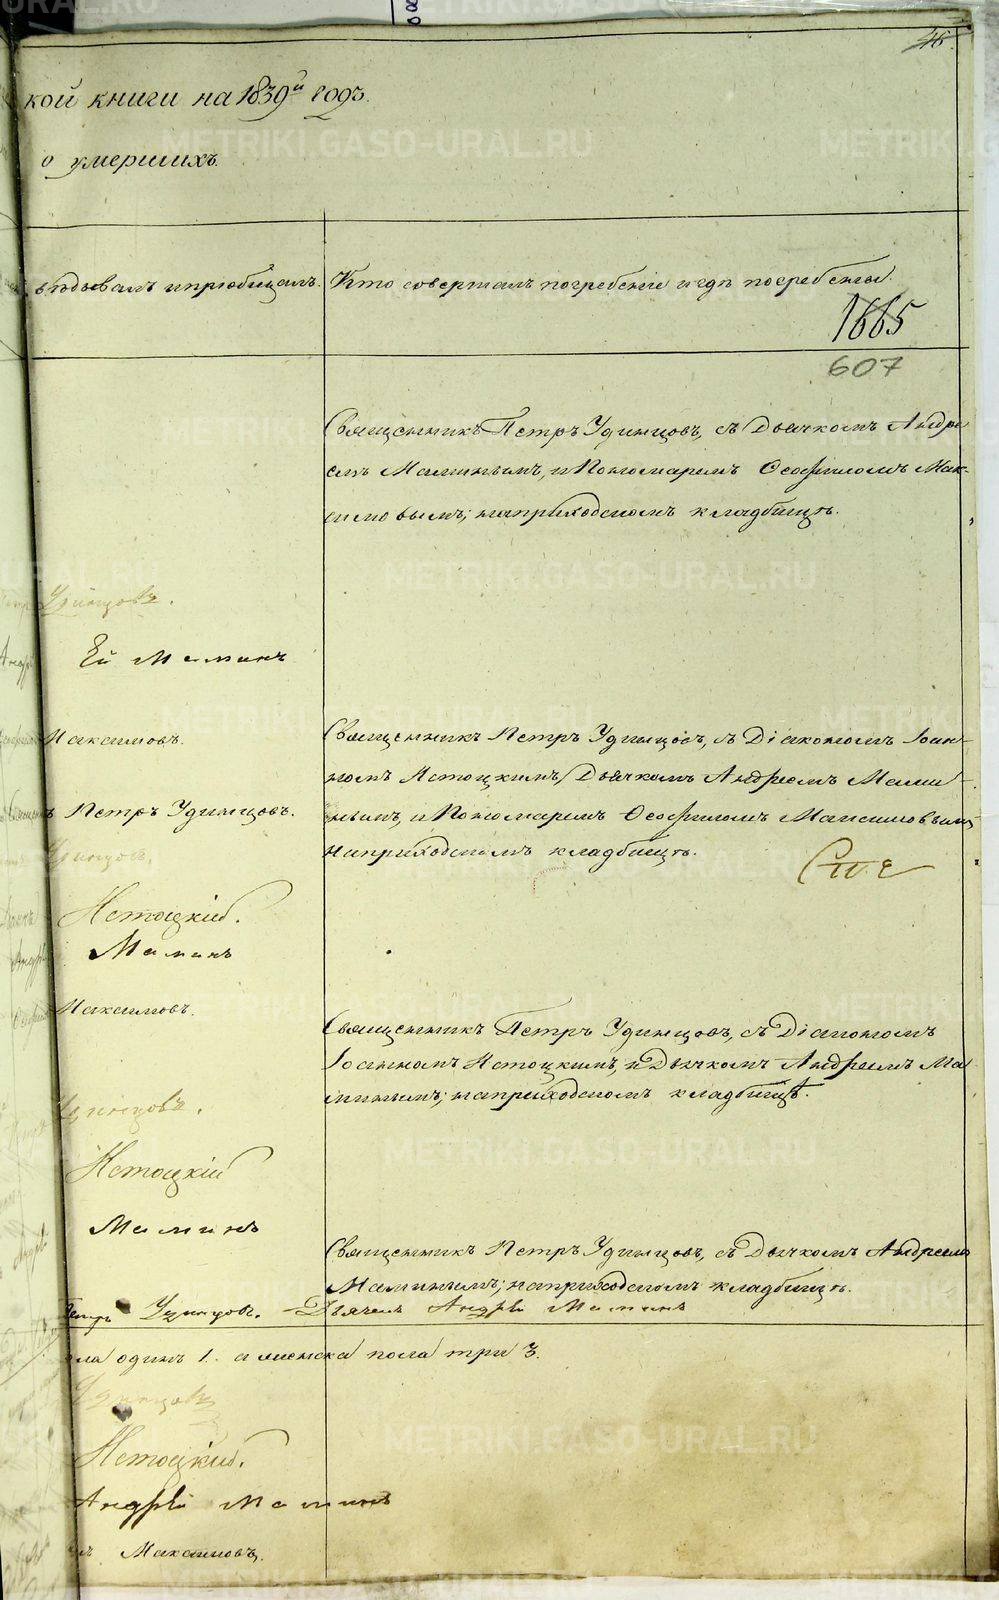 46.
кой книги на 1839й годъ.
о умершихъ.
вѣдывалъ и пріобщалъ.
Кто совершалъ погребеніе и гдѣ погребены.
1665
607
Священникъ Петръ Удинцовъ, съ Дьячкомъ Андре
емъ Маминымъ, и Пономаремъ Ѳеофиломъ Мак-
симовымъ; на приходскомъ кладбищѣ.
Удинцовъ.
ей Маминъ
Максимовъ.
Священникъ Петръ Удинцовъ, съ Діакономъ Іоан-
номъ Нетоцкимъ, Дьячкомъ Андреемъ Мами-
нымъ, и Пономаремъ Ѳеофиломъ Максимовымъ
на приходскомъ кладбищѣ.
ъ Петръ Удинцовъ.
Удинцовъ.
Нетоцкій.
Маминъ
Максимовъ.
Священникъ Петръ Удинцовъ, съ Діакономъ
Іоанномъ Нетоцкимъ, и Дьячкомъ Андреемъ Ма
минымъ; на приходскомъ кладбищѣ.
Удинцовъ.
Нетоцкій
Маминъ
Священникъ Петръ Удинцовъ, съ Дьячкомъ Андреемъ
Маминымъ; на приходскомъ кладбищѣ.
Петръ Удинцовъ. Дьячекъ Андрей Маминъ
ла одинъ 1. а женска пола три 3.
Удинцовъ
Нетоцкій.
Андрей Маминъ
лъ Максимовъ.
METRIKI.GASO-URAL.RU